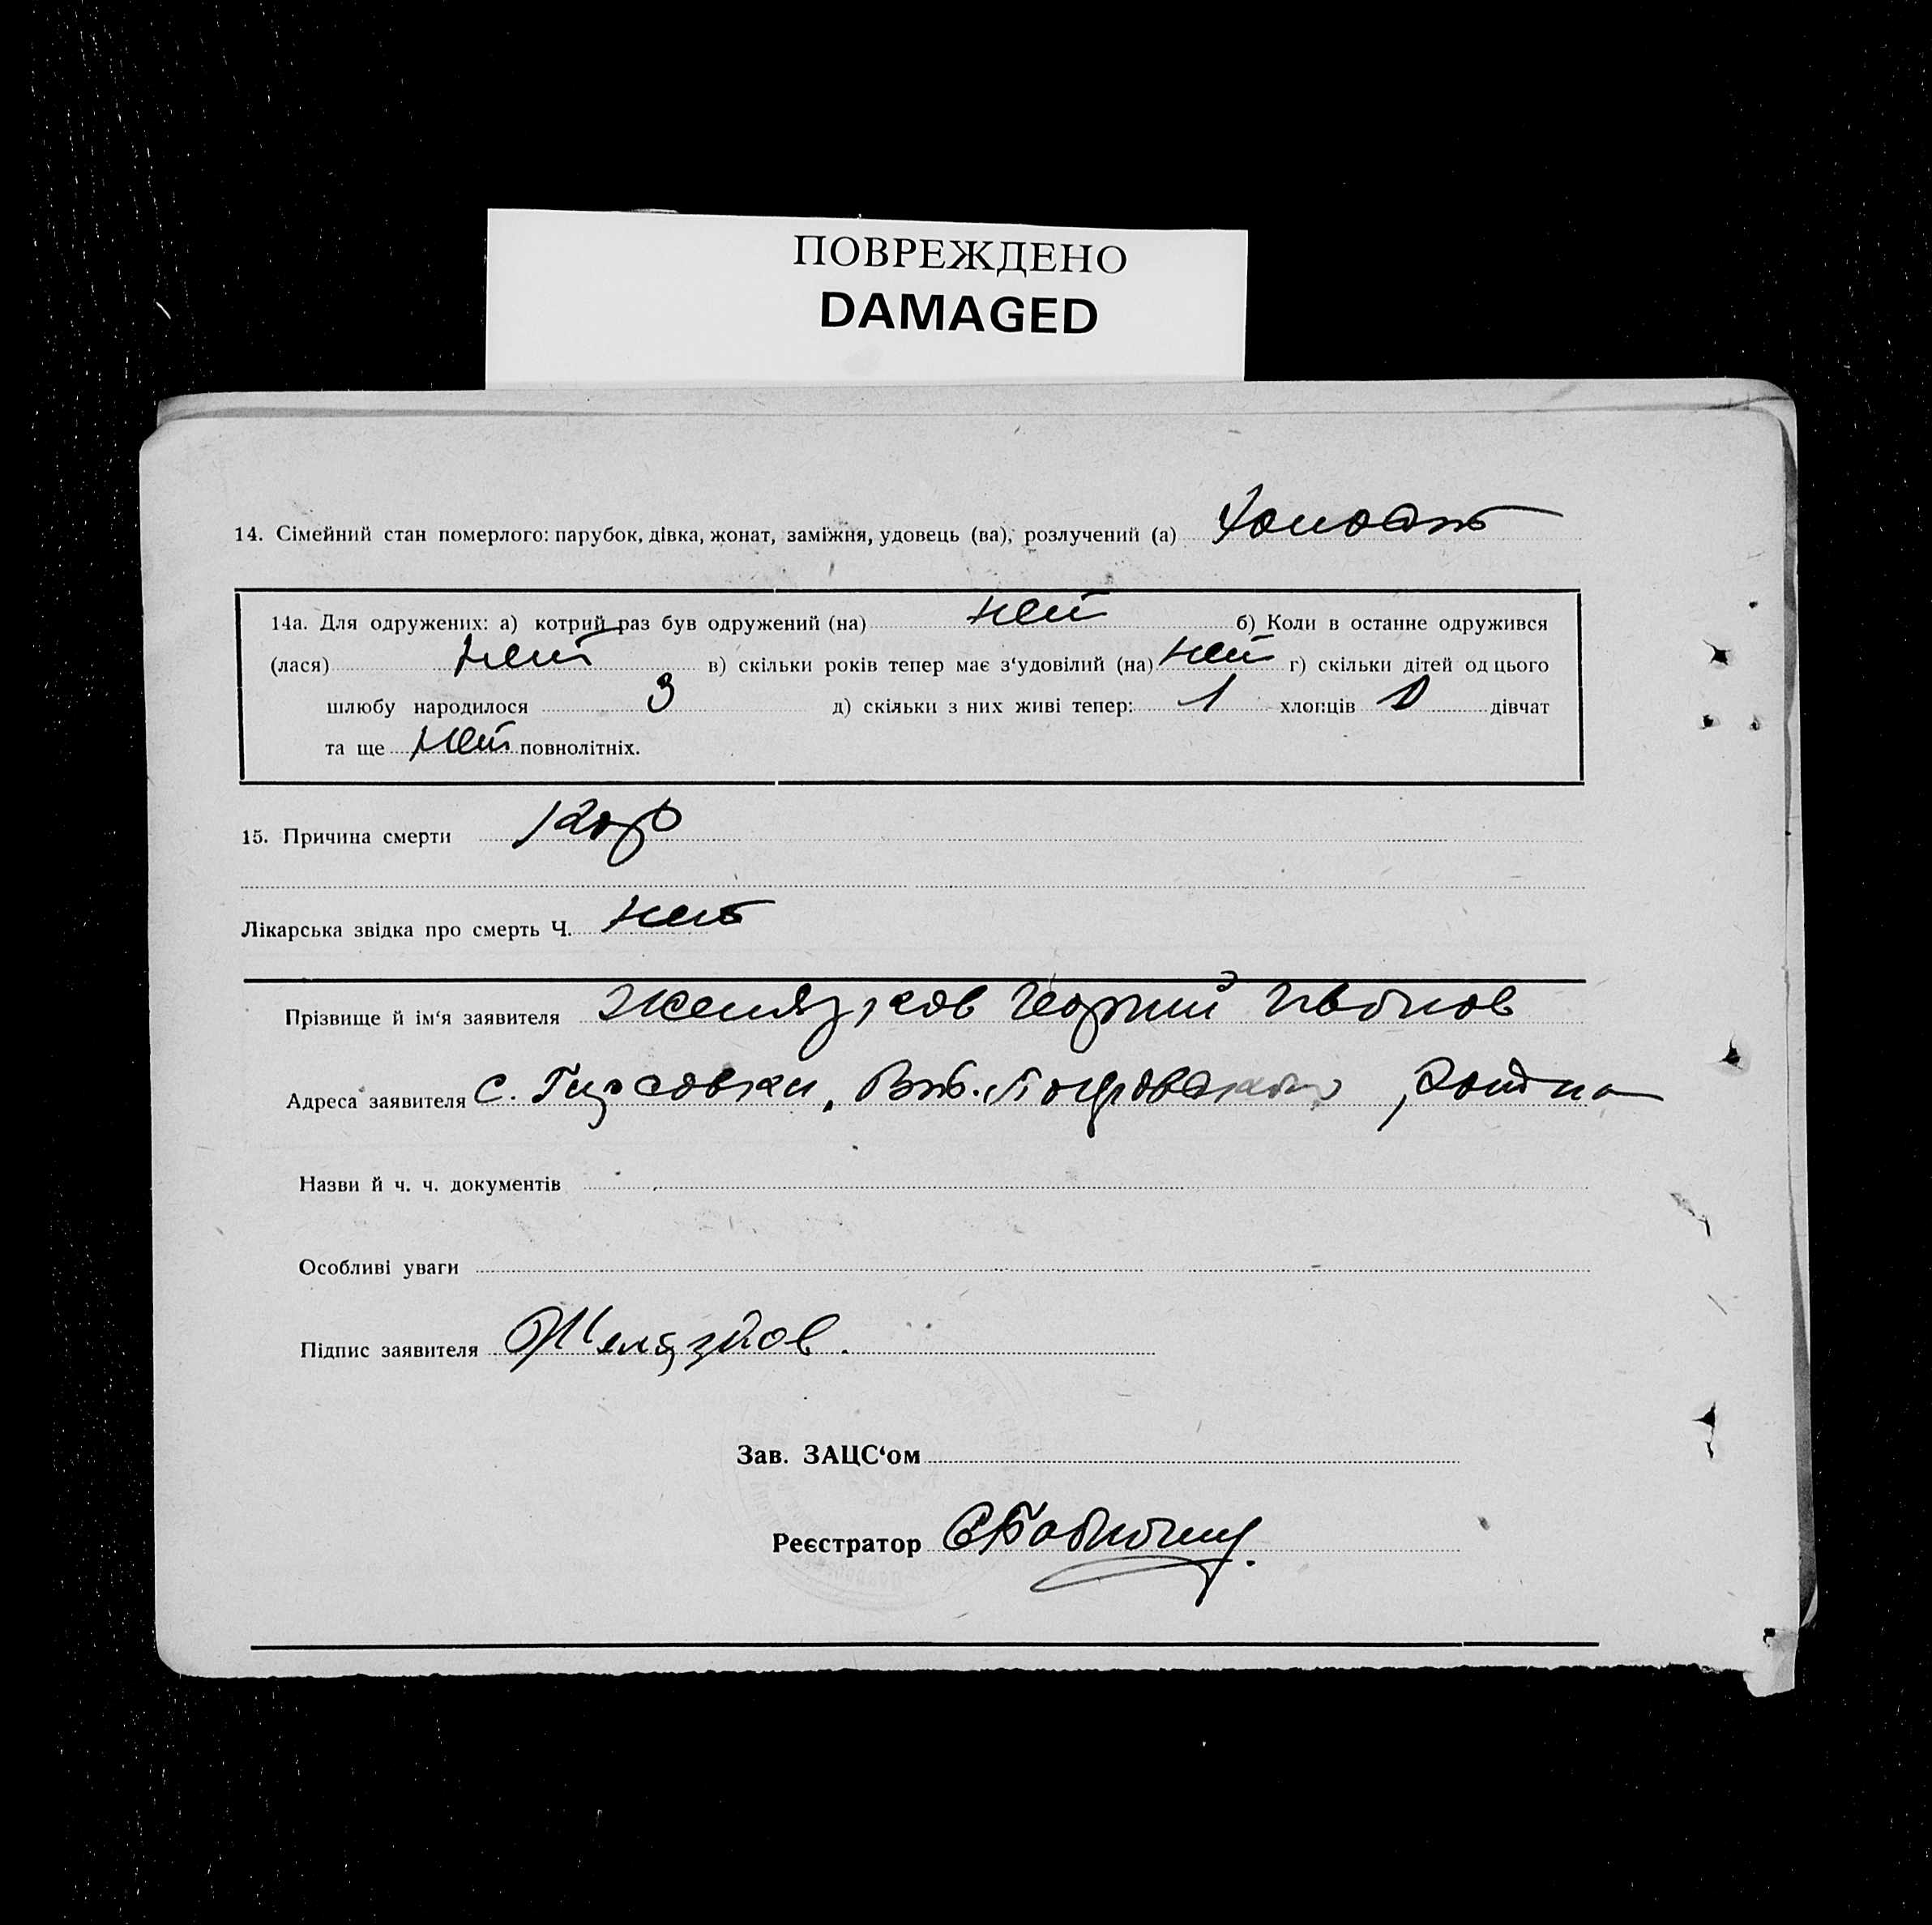 ПОВРЕЖДЕНО
DAMAGED
14. Сімейний стан померлого: парубок, дівка, жонат, заміжня, удовець (ва), розлучений (а) Холост
14а. Для одружених: а) котрий раз був одружений (на) нет б) Коли в останне одружився
(лася) нет в) скільки років тепер має з‘удовілий (на) нет г) скільки дітей од цього
шлюбу народилося 3 д) скільки з них живі тепер: 1 хлопців дівчат
та ще нет повнолітніх.
15. Причина смерти Кор
Лікарська звідка про смерть Ч. нет
Прізвище й ім‘я заявителя Желязков Георгий Иванов
Адреса заявителя с. Гирсовки, района
Назви й ч. ч. документів
Особливі уваги
Підпис заявителя Желязков.
Зав. ЗАЦС‘ом
Реєстратор